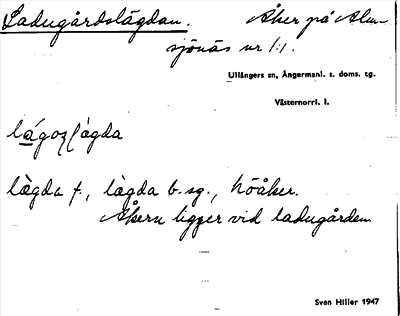 Ladugårdslägdan. Åker på Alm-
sjönäs nr 1:1.
Ullångers sn, Ångermanl. s. doms. tg.
Västernorrl. l.
lägda f., lägda b. sg., höåker.
Åkern ligger vid ladugården
Sven Hiller 1947